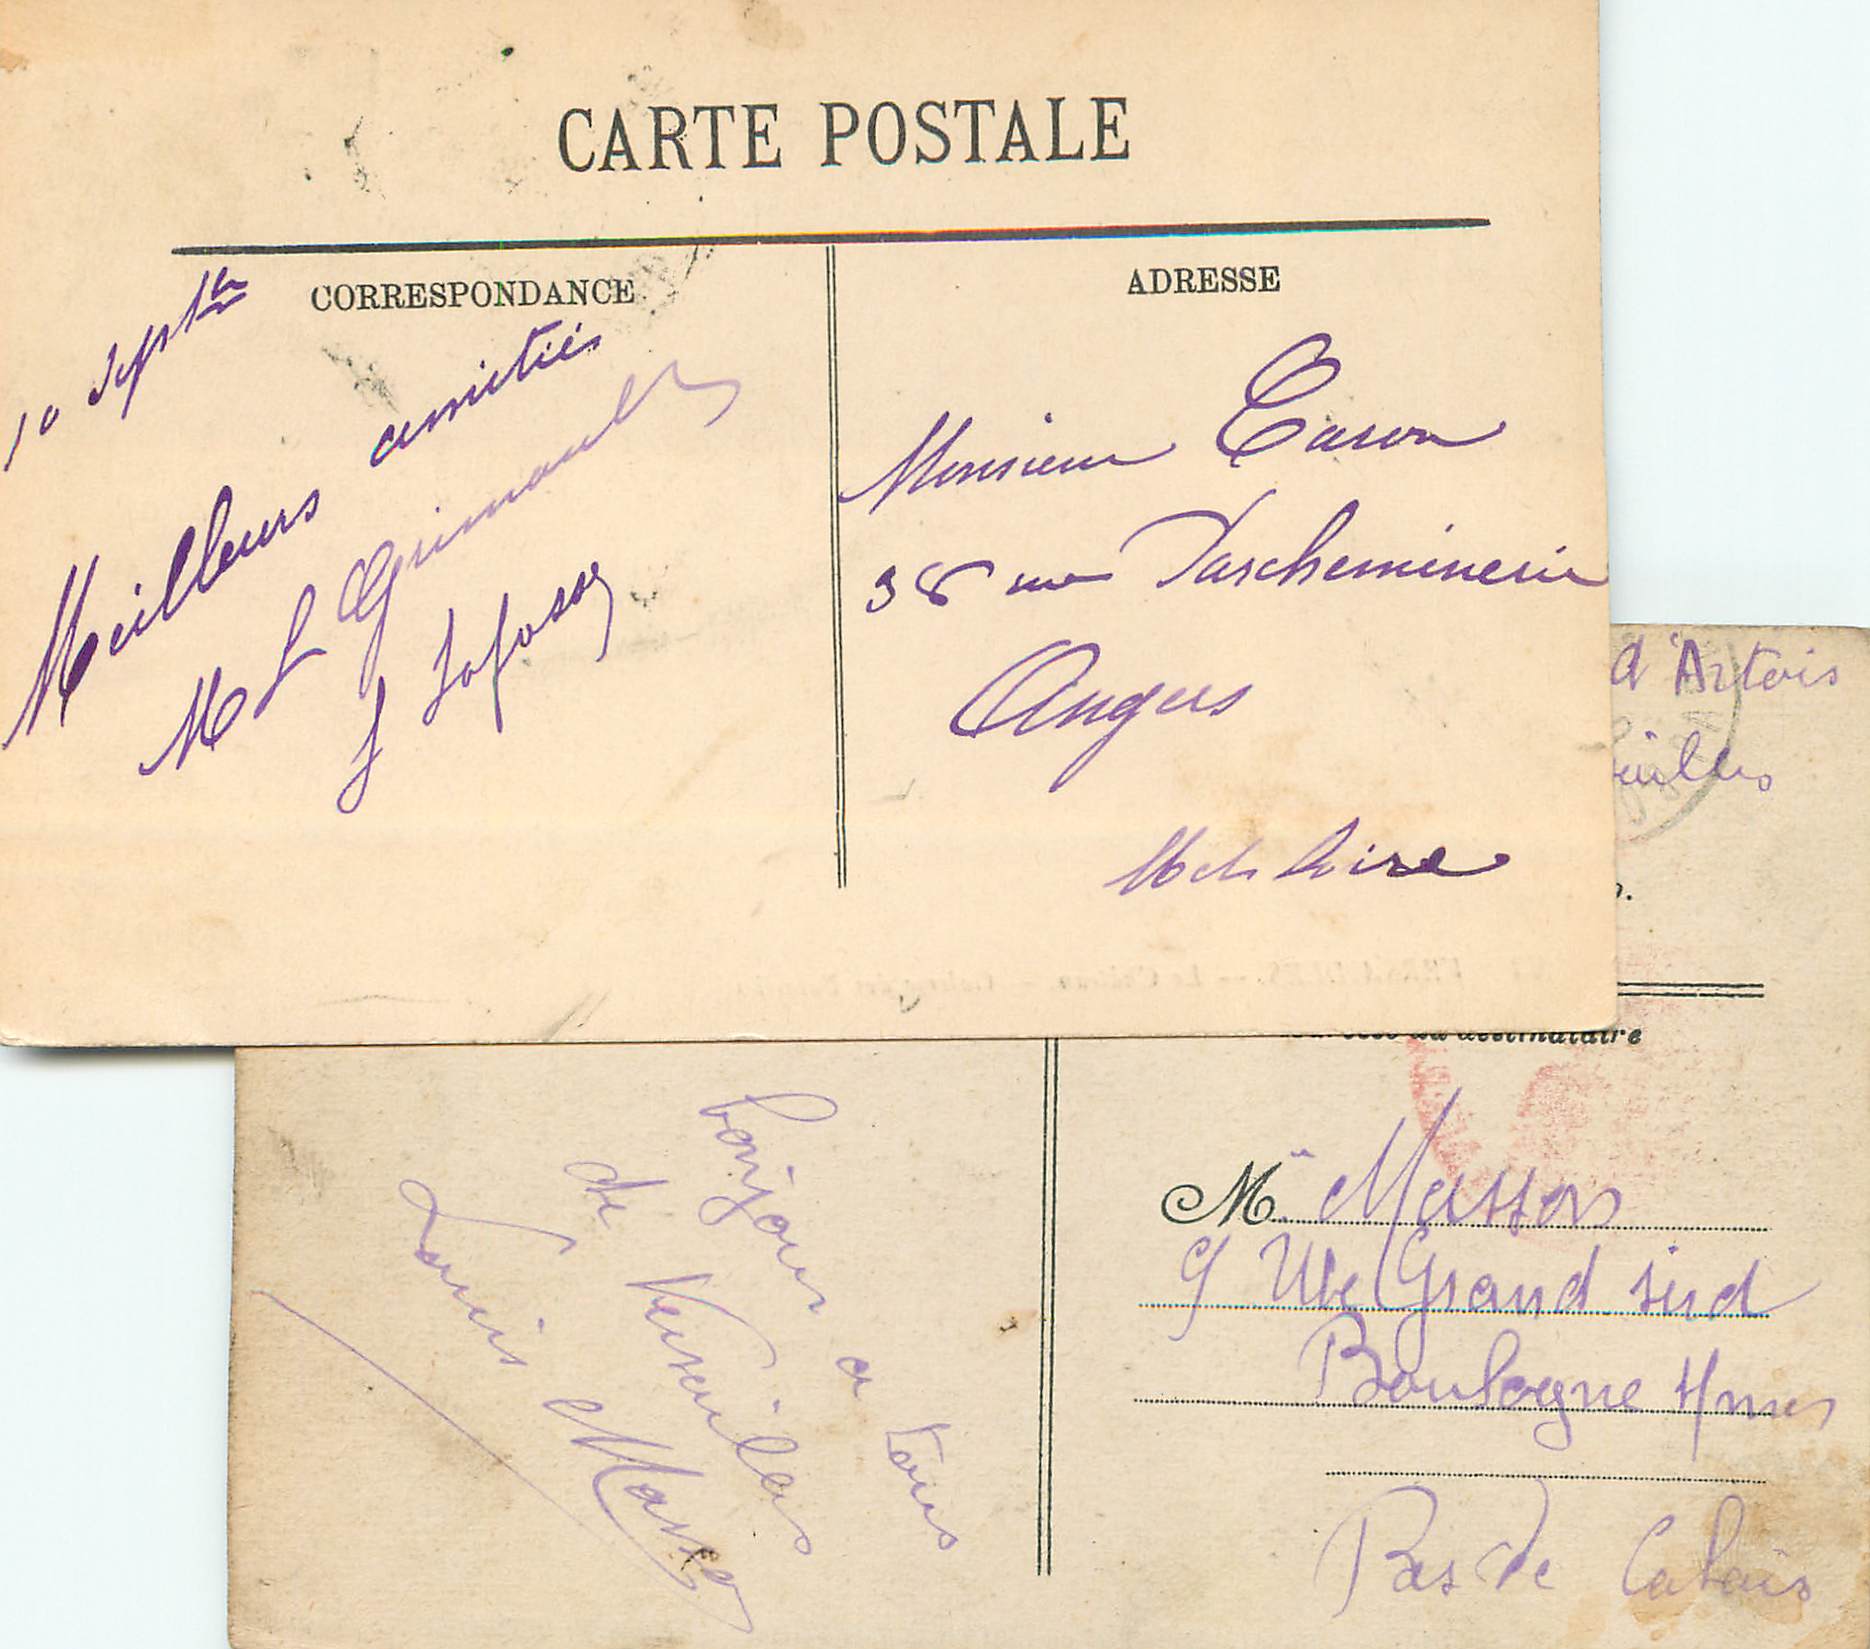 CARTE POSTALE
CORRESPONDANCE
ADRESSE
10 Septbre
Meilleurs amitiés
M L Grimault
J Lafosse
Monsieur Caron
38 rue Parcheminerie
Angers
M et Loire
d'Artois
destinataire
bonjour a tous
de Versailles
Louis Masson
M. Masson
Grand Sud
Boulogne
Pas de Calais